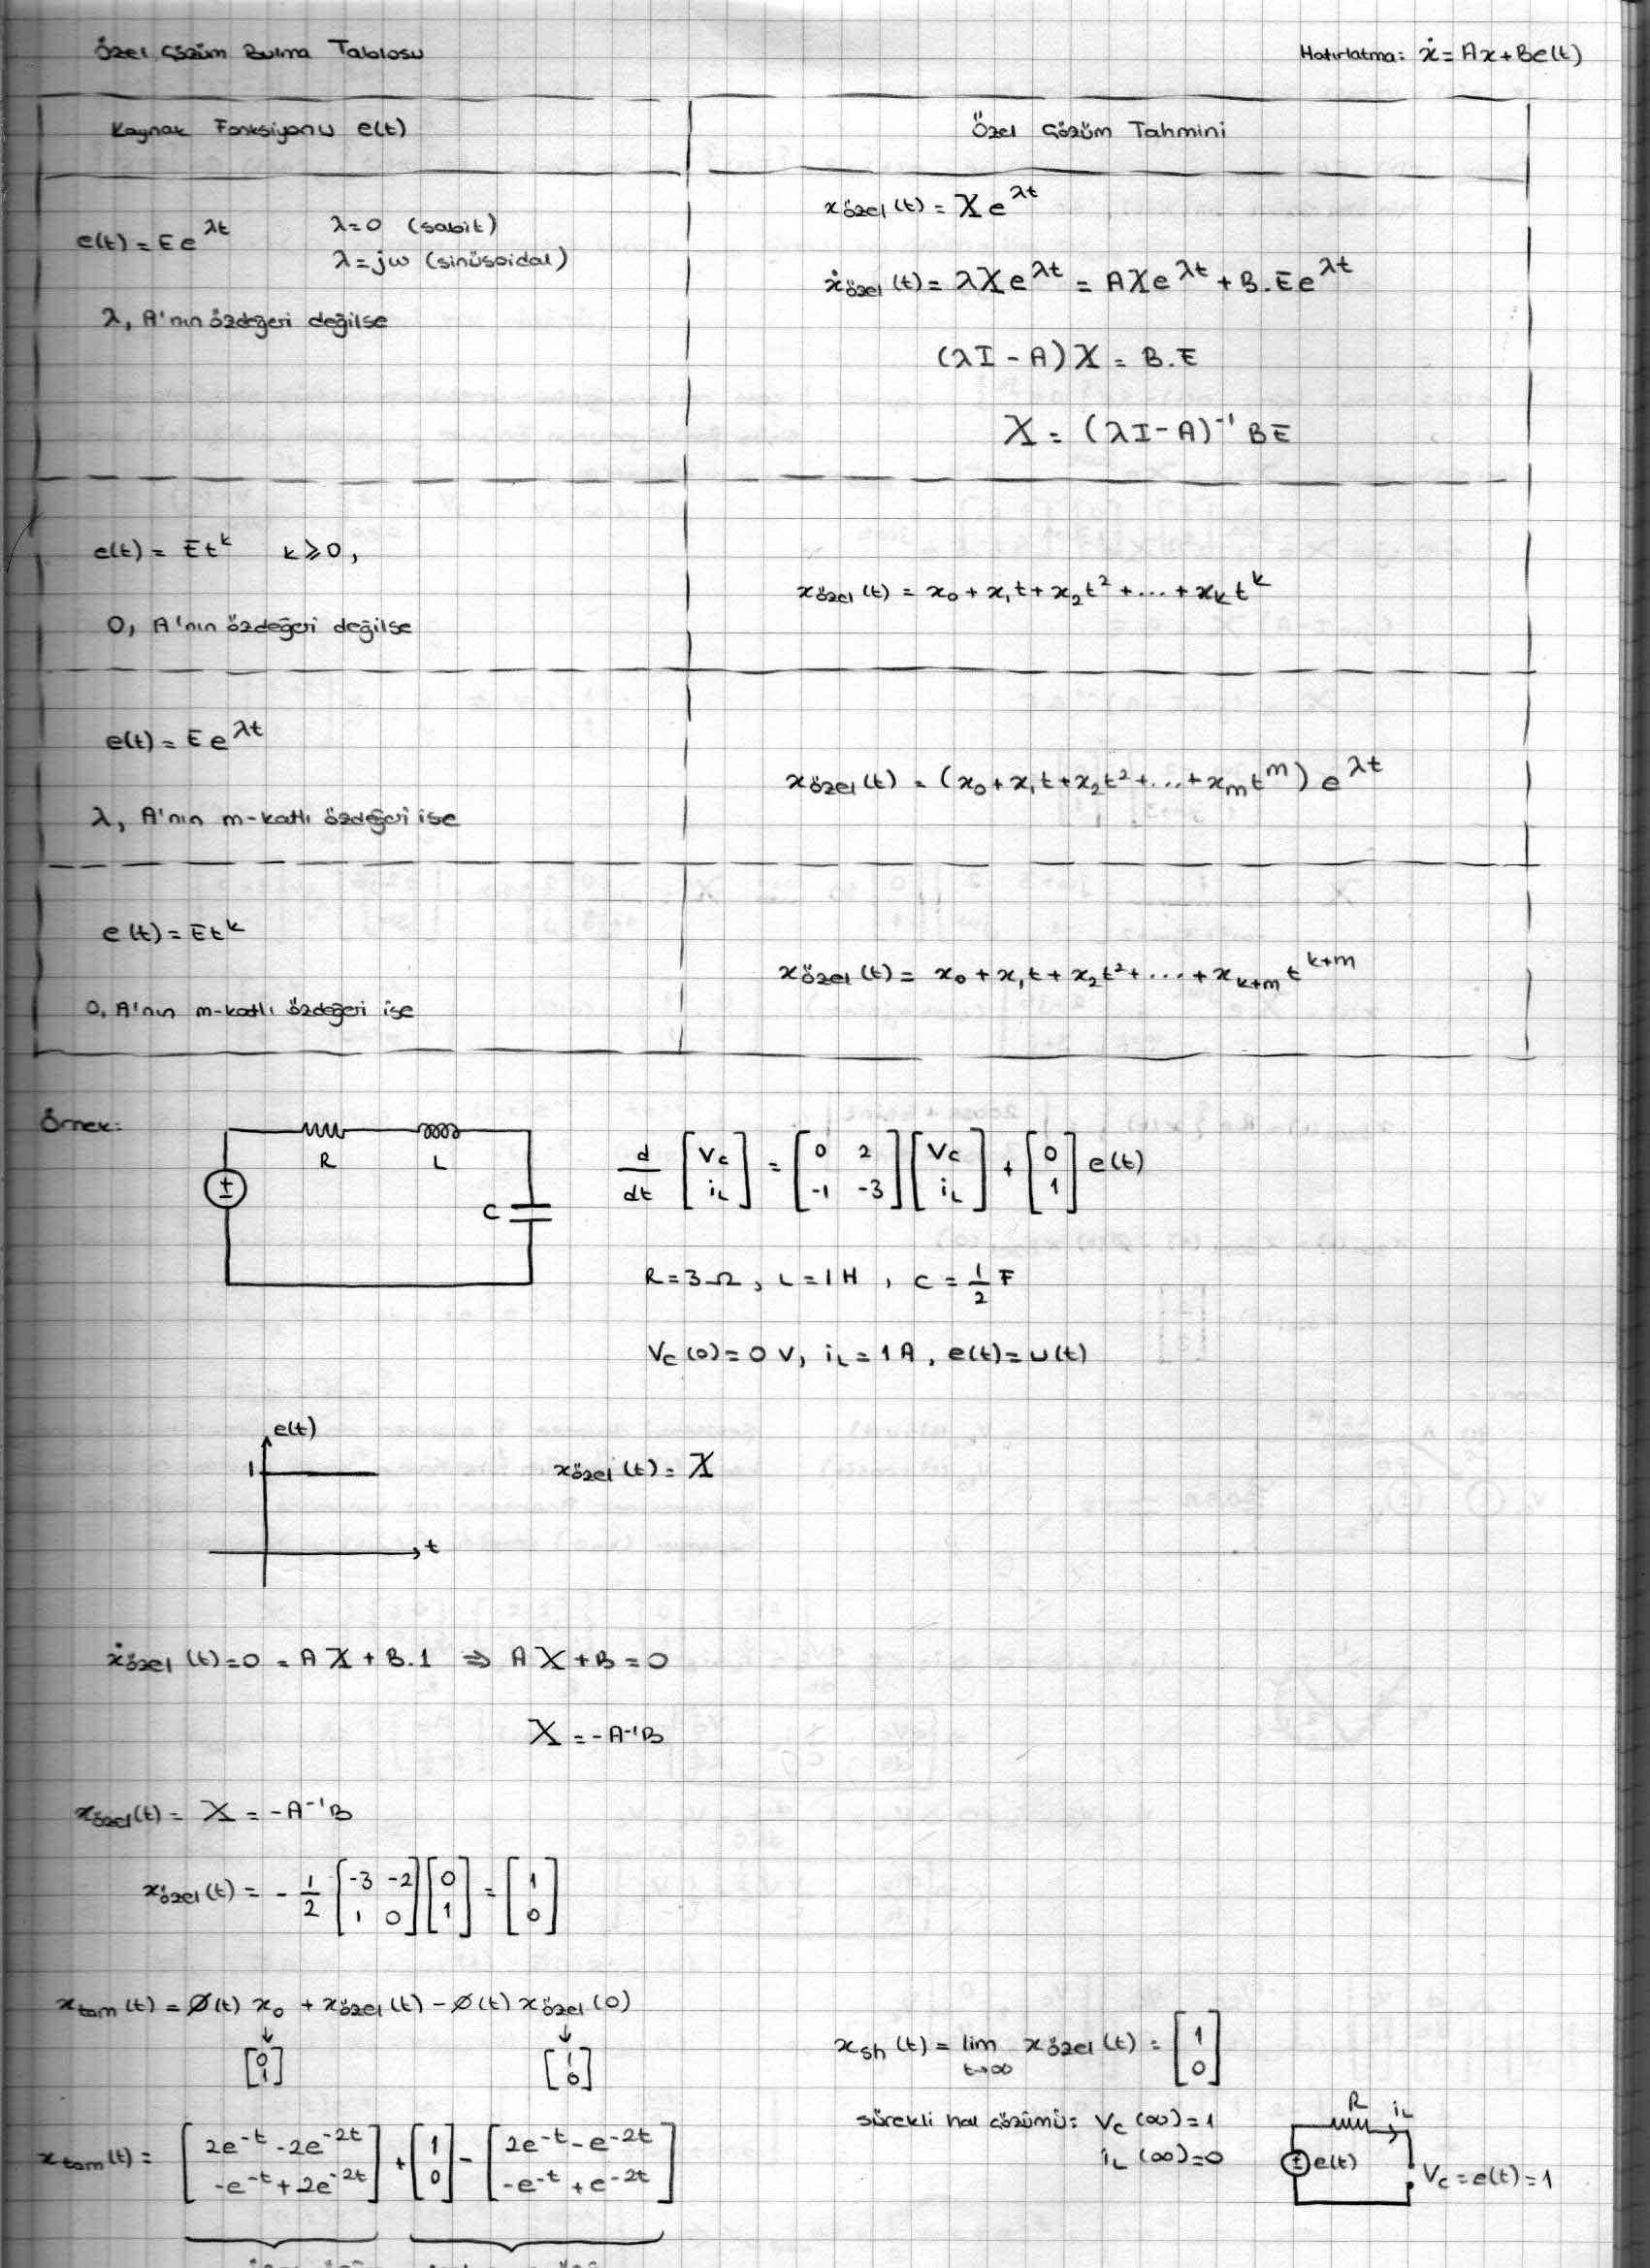 Özel Çözüm Bulma Tablosu
Hatırlatma: ẋ = Ax + Be(t)
Kaynak Fonksiyonu e(t)
Özel Çözüm Tahmini
e(t) = E e^λt
λ=0 (sabit)
λ=jω (sinüsoidal)
λ, A'nın özdeğeri değilse
xözel(t) = X e^λt
ẋözel(t) = λXe^λt = AXe^λt + B.Ee^λt
(λI - A) X = B.E
X = (λI-A)^-1 BE
e(t) = Et^k k ⩾ 0,
0, A'nın özdeğeri değilse
xözel(t) = x₀ + x₁t + x₂t² + ... + xₖt^k
e(t) = E e^λt
λ, A'nın m-katlı özdeğeri ise
xözel(t) = (x₀ + x₁t + x₂t² + ... + xₘt^m) e^λt
e(t) = Et^k
0, A'nın m-katlı özdeğeri ise
xözel(t) = x₀ + x₁t + x₂t² + ... + x_k+m t^k+m
Örnek:
R L C ±
d/dt [Vc iL] = [0 2 -1 -3] [Vc iL] + [0 1] e(t)
R=3Ω, L=1H, C=1/2 F
Vc(0)=0 V, iL=1A, e(t)=u(t)
e(t)
1
t
xözel(t) = X
ẋözel(t)=0 = AX + B.1 ⇒ AX+B=0
X = -A^-1B
xözel(t) = X = -A^-1B
xözel(t) = - 1/2 [-3 -2 1 0] [0 1] = [1 0]
xtam(t) = Ø(t) x₀ + xözel(t) - Ø(t) xözel(0)
↓ ↓
[0 1] [1 0]
xtam(t) = [2e^-t - 2e^-2t -e^-t + 2e^-2t] + [1 0] - [2e^-t - e^-2t -e^-t + e^-2t]
xsh(t) = lim t→∞ xözel(t) = [1 0]
sürekli hal çözümü: Vc(∞)=1
iL(∞)=0
R iL
± e(t)
Vc = e(t) = 1